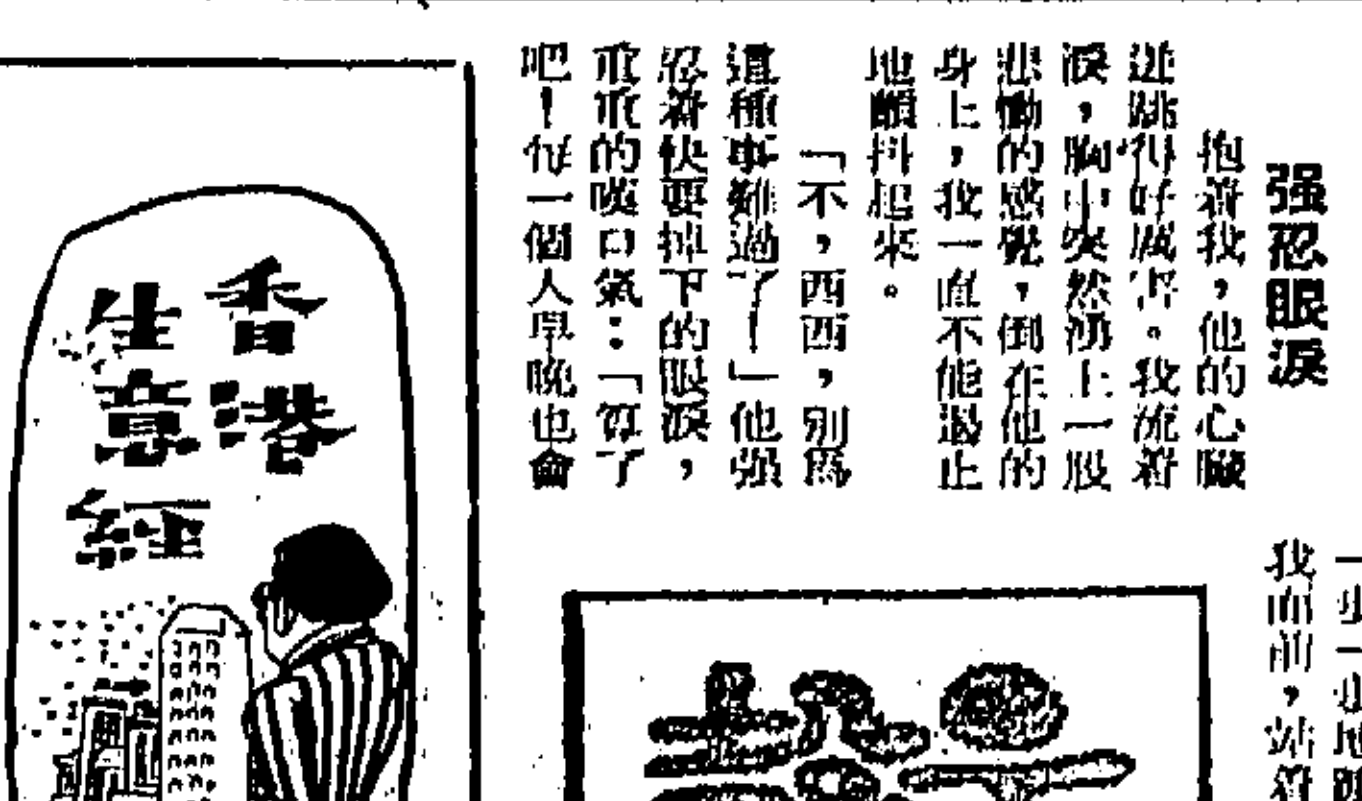 强忍眼淚
抱着我，他的心臟
迸跳得好厲害。我流着
淚，胸中突然湧上一股
悲慟的感覺，倒在他的
身上，我一直不能遏止
地顫抖起來。
「不，西西，別爲
這種事難過了！」他强
忍着快要掉下的眼淚，
重重的嘆口氣：「算了
吧！每一個人早晚也會
我面前，站着
香港
生意經